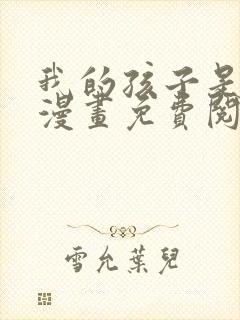 我的孩子是
漫畫免費閱
雪允葉兒